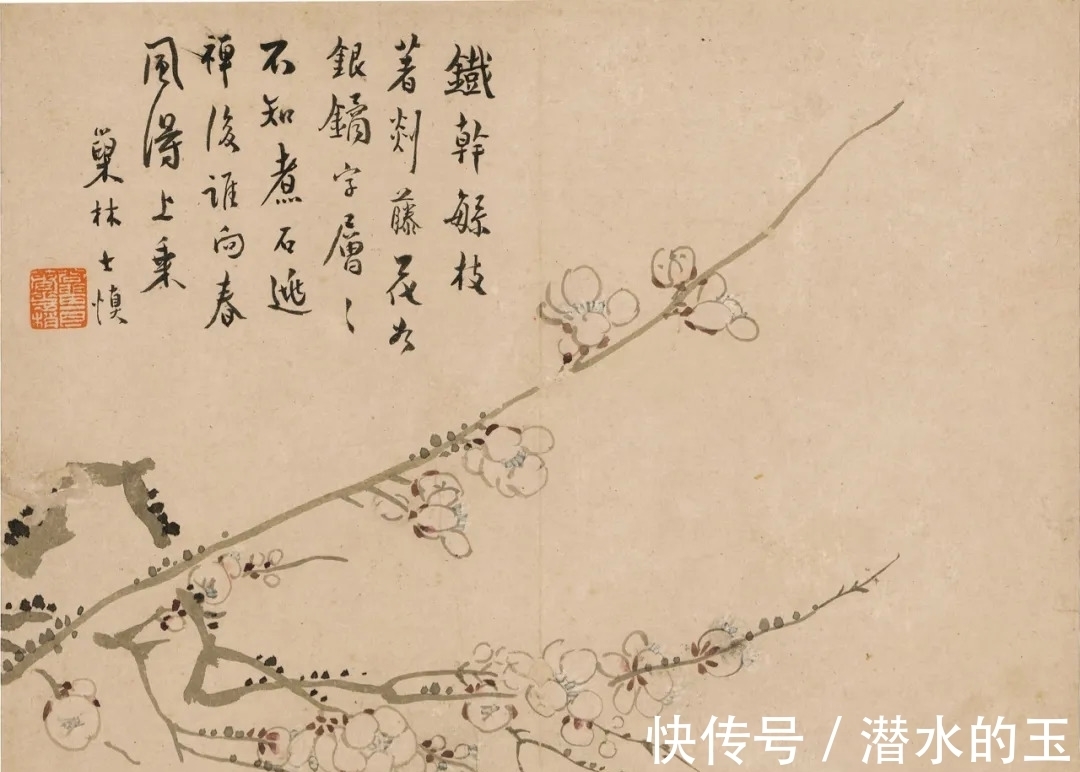 鐵幹䌓枝
著剡藤花如
銀鏑字層〻
不知煮石逃
禪後誰向春
風得上乘
巢林士慎
快传号 / 潜水的玉